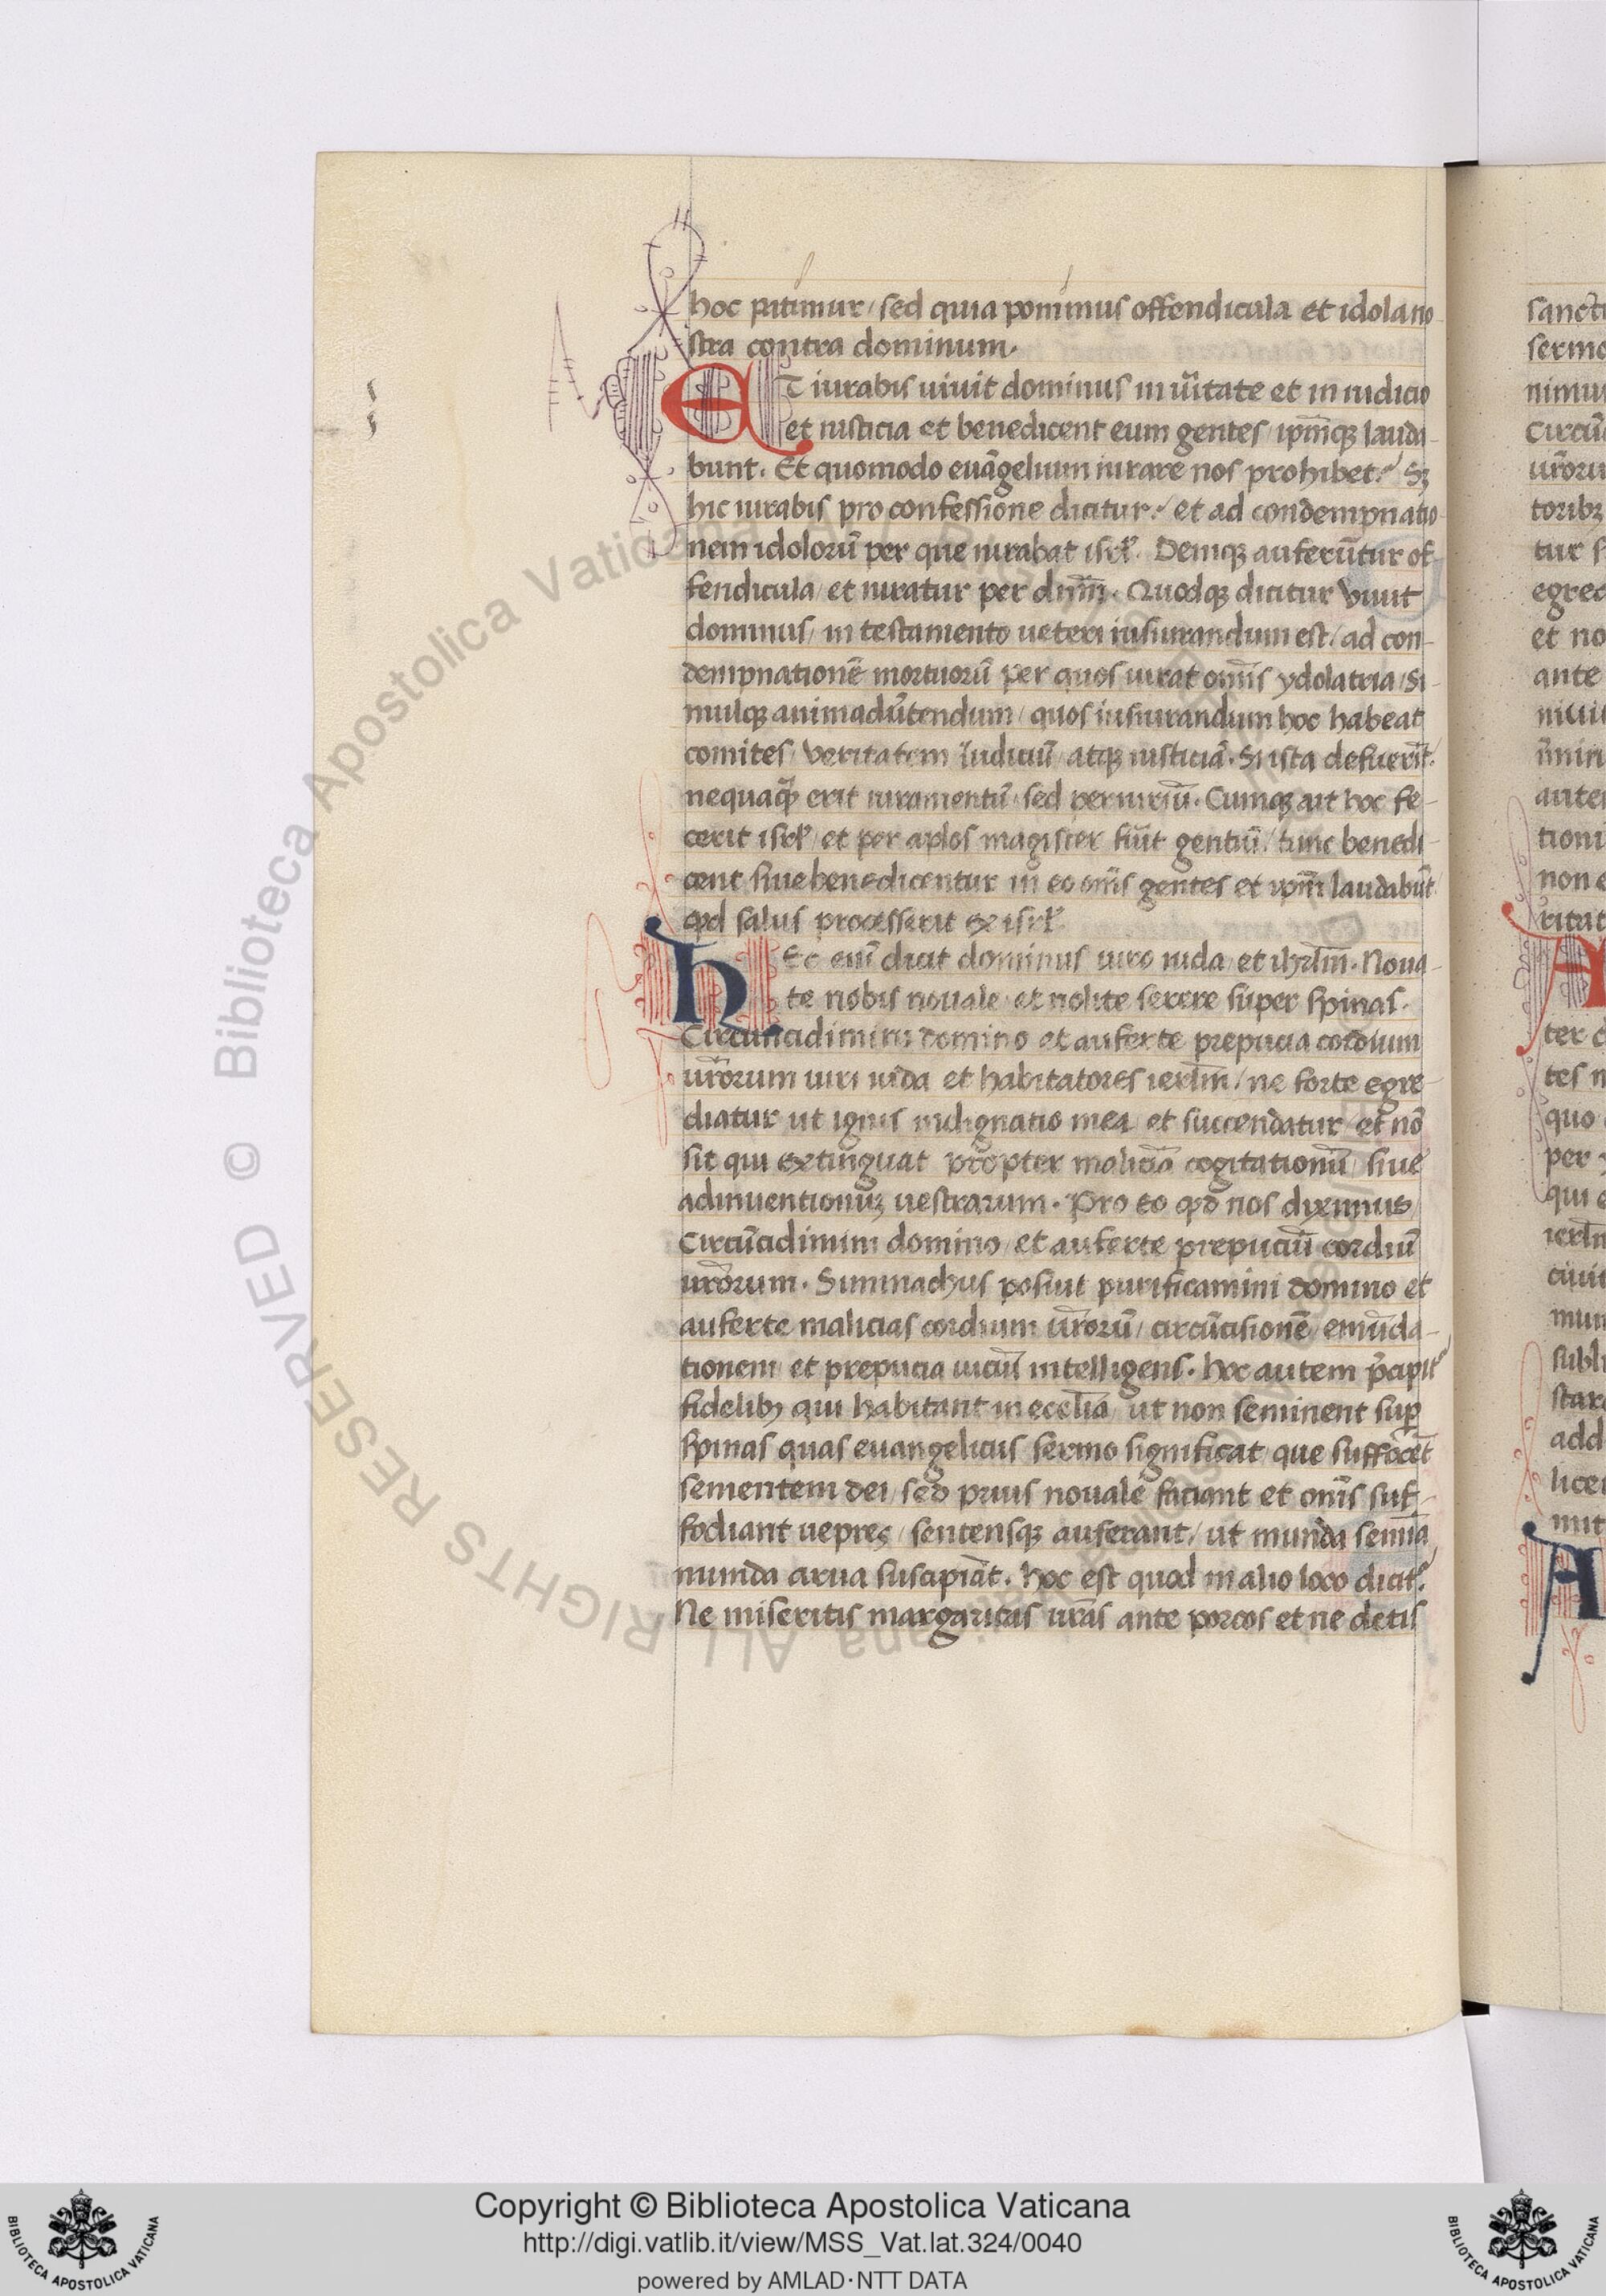 hoc patimur / sed quia ponimus offendicula et idola no-
stra contra dominum.
ET iurabis uiuit dominus in ũitate et in iudicio
et iusticia et benedicent eum gentes / ip̃mq; lauda-
bunt. Et quomodo euãgelium iurare nos prohibet? Sꝫ
hic iurabis pro confessione dicitur / et ad condempnatio-
nem idolorũ per que iurabat isrl̃. Deniq; auferũtur of-
fendicula / et iuratur per dñm. Quodq; dicitur viuit
dominus / in testamento ueteri iusiurandum est / ad con-
dempnationẽ mortuorũ per quos iurat om̃is ydolatria / Si-
mulq; animadũtendum / quos iusiurandum hoc habeat
comites / veritatem Iudiciũ / atq; iusticiã. Si ista defuerĩt /
nequaq̃ erit iuramentũ / sed periuriũ. Cumq; ait hoc fe-
cerit isrl̃ / et per ap̃los magister fũit gentiũ / tunc benedi-
cent siue benedicentur in eo om̃s gentes et ip̃m laudabũt
qd̃ salus processerit ex isrl̃.
HEc enĩ dicit dominus uiro iuda / et ihrl̃m. Noua-
te nobis nouale / et nolite serere super spinas.
Circuncidimini domino et auferte prepucia cordium
ur̃orum uiri iuda et habitatores ierl̃m / ne forte egre-
diatur ut ignis indignatio mea / et succendatur / et nõ
sit qui extinguat propter maliciã cogitationũ / siue
adinuentionuꝫ uestrarum. Pro eo qd̃ nos diximus /
Circũcidimini domino / et auferte prepuciũ cordiũ
ur̃orum. Simmachus posuit purificamini domino et
auferte malicias cordium ur̃orũ / circũcisionẽ / emũda-
tionem / et prepucia uiciũ intelligens. Hoc autem p̃cipit̃
fidelibꝫ qui habitant in eccl̃ia / ut non seminent sup̃
spinas quas euangelicus sermo significat / que suffocẽt
sementem dei / sed prius nouale faciant et om̃s suf-
fodiant uepres / sentensq; auferant / ut munda semĩa
munda arua suscipiãt. Hoc est quod in alio loco dicit̃.
Ne miseritis margaritas ur̃as ante porcos et ne detis
© Biblioteca Apostolica Vaticana ALL RIGHTS RESERVED
Copyright © Biblioteca Apostolica Vaticana
http://digi.vatlib.it/view/MSS_Vat.lat.324/0040
powered by AMLAD·NTT DATA
BIBLIOTECA APOSTOLICA VATICANA
BIBLIOTECA APOSTOLICA VATICANA